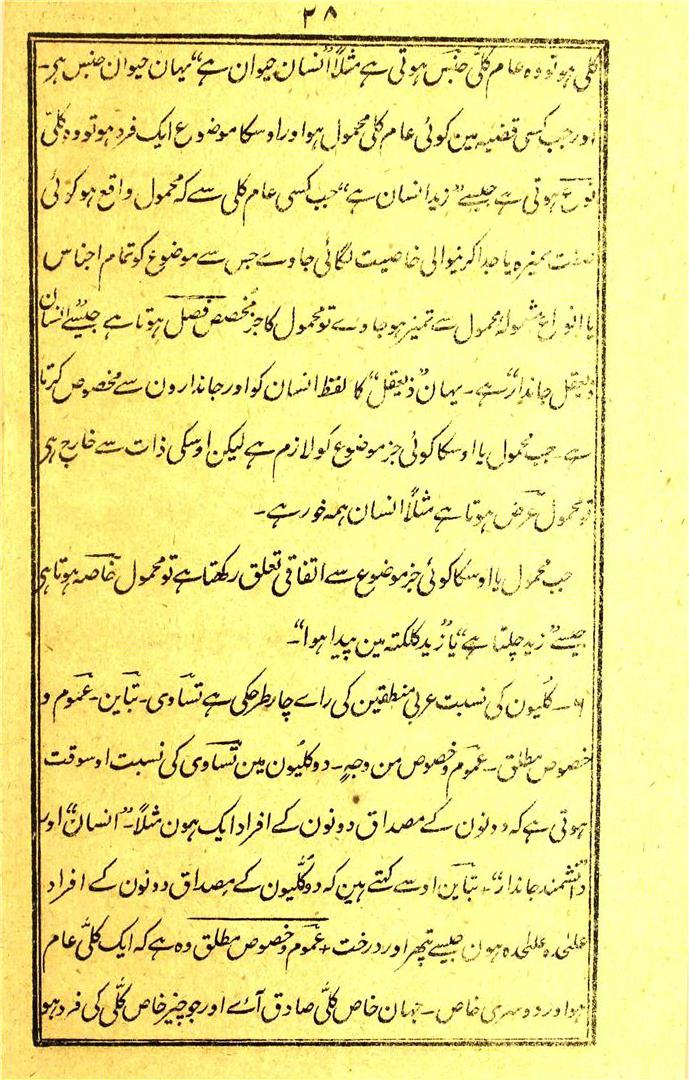 ۲۸
کلی ہو تو وہ عام کلّی جنس ہوتی ہے مثلاً "انسان حیوان ہے" یہان حیوان جنس ہی۔
اور جب کسی قضیہ مین کوئی عام کلی محمول ہوا ور اوسکا موضوع ایک فرد ہو تو وہ کلّی
نوع ہوتی ہے جیسے "زید انسان ہے" جب کسی عام کلی سے کہ محمول واقع ہو کوئی
صفت ممیزہ یا جدا کرنیوالی خاصیت لگائی جاوے جس سے موضوع کو تمام اجناس
یا انواع مشمولۂ محمول سے تمیز ہو جاوے تو محمول کا جز مخصص فصل ہوتا ہے جیسے "انسان
ذیعقل جاندار" ہے۔ یہان "ذیعقل" کا لفظ انسان کو اور جاندارون سے مخصوص کرتا
ہے۔ جب محمول یا اوسکا کوئی جز موضوع کو لازم ہے لیکن اوسکی ذات سے خارج ہی
تو محمول عرض ہوتا ہے مثلاً انسان ہمہ خور ہے۔
جب محمول یا اوسکا کوئی جز موضوع سے اتفاقی تعلق رکھتا ہے تو محمول خاصہ ہوتا ہی
جیسے "زید چلتا ہے" یا "زید کلکتہ مین پیدا ہوا"۔
۶۔ کلّیون کی نسبت عربی منطقین کی راے چار طرحکی ہے تساوی۔ تباین۔ عموم و
خصوص مطلق۔ عموم و خصوص من وجہٍ۔ دو کلیون مین تساوی کی نسبت اوسوقت
ہوتی ہے کہ دونون کے مصداق دونون کے افراد ایک ہون مثلاً۔ "انسان" اور
"دانشمند جاندار" + تباین اوسے کہتے ہین کہ دو کلّیون کے مصداق دونون کے افراد
علیٰحدہ علیٰحدہ ہون جیسے پتھر اور درخت + عموم و خصوص مطلق وہ ہے کہ ایک کلّی عام
ہو اور دوسری خاص۔ جہان خاص کلّی صادق آئے اور جو چیز خاص کلّی کی فرد ہو